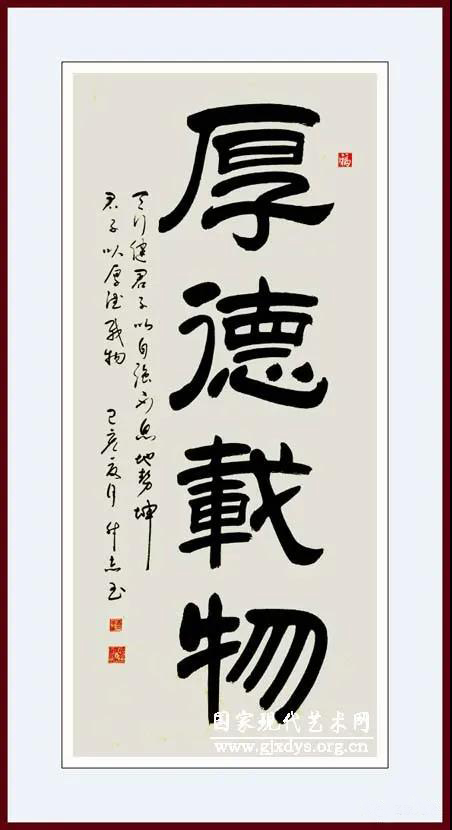 厚德載物
天行健君子以自強不息地勢坤
君子以厚德載物
己亥夏月
国家现代艺术网
www.gjxdys.org.cn